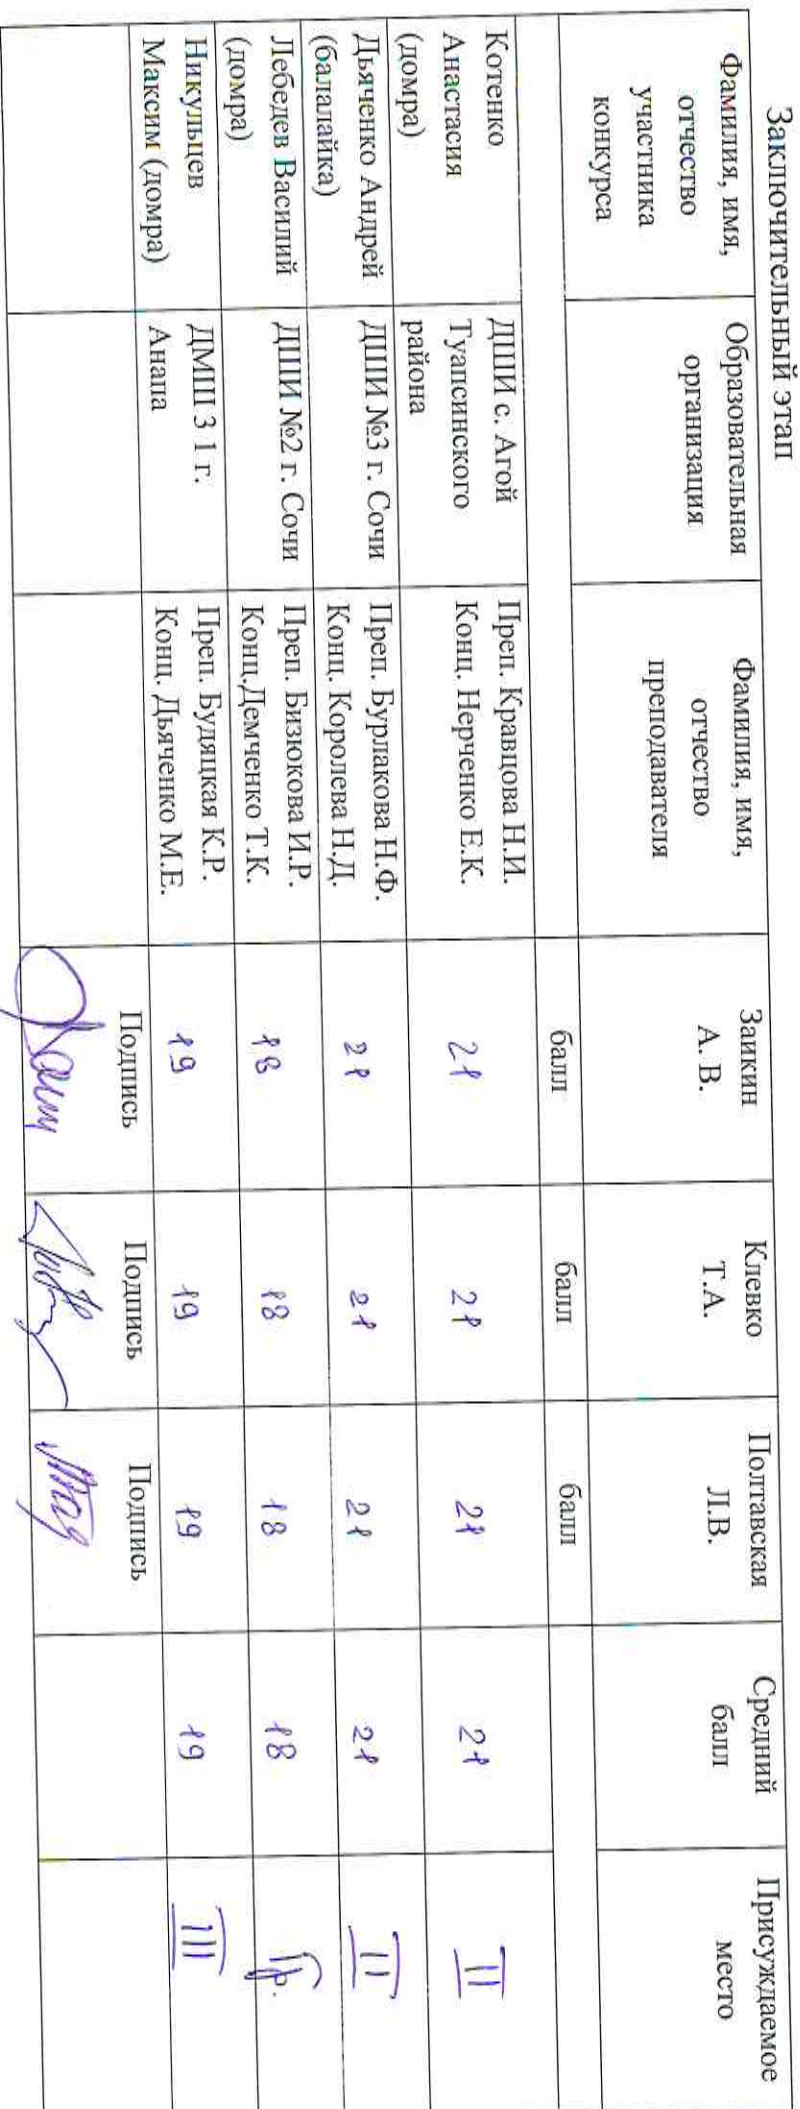 Заключительный этап
Фамилия, имя,
отчество
участника
конкурса
Образовательная
организация
Фамилия, имя,
отчество
преподавателя
Заикин
А. В.
Клевко
Т.А.
Полтавская
Л.В.
Средний
балл
Присуждаемое
место
балл
балл
балл
Котенко
Анастасия
(домра)
ДШИ с. Агой
Туапсинского
района
Преп. Кравцова Н.И.
Конц. Нерченко Е.К.
21
21
21
21
II
Дьяченко Андрей
(балалайка)
ДШИ №3 г. Сочи
Преп. Бурлакова Н.Ф.
Конц. Королева Н.Д.
21
21
21
21
II
Лебедев Василий
(домра)
ДШИ №2 г. Сочи
Преп. Бизюкова И.Р.
Конц.Демченко Т.К.
18
18
18
18
Гр.
Никульцев
Максим (домра)
ДМШ 3 1 г.
Анапа
Преп. Будяцкая К.Р.
Конц. Дьяченко М.Е.
19
19
19
19
III
Подпись
Подпись
Подпись